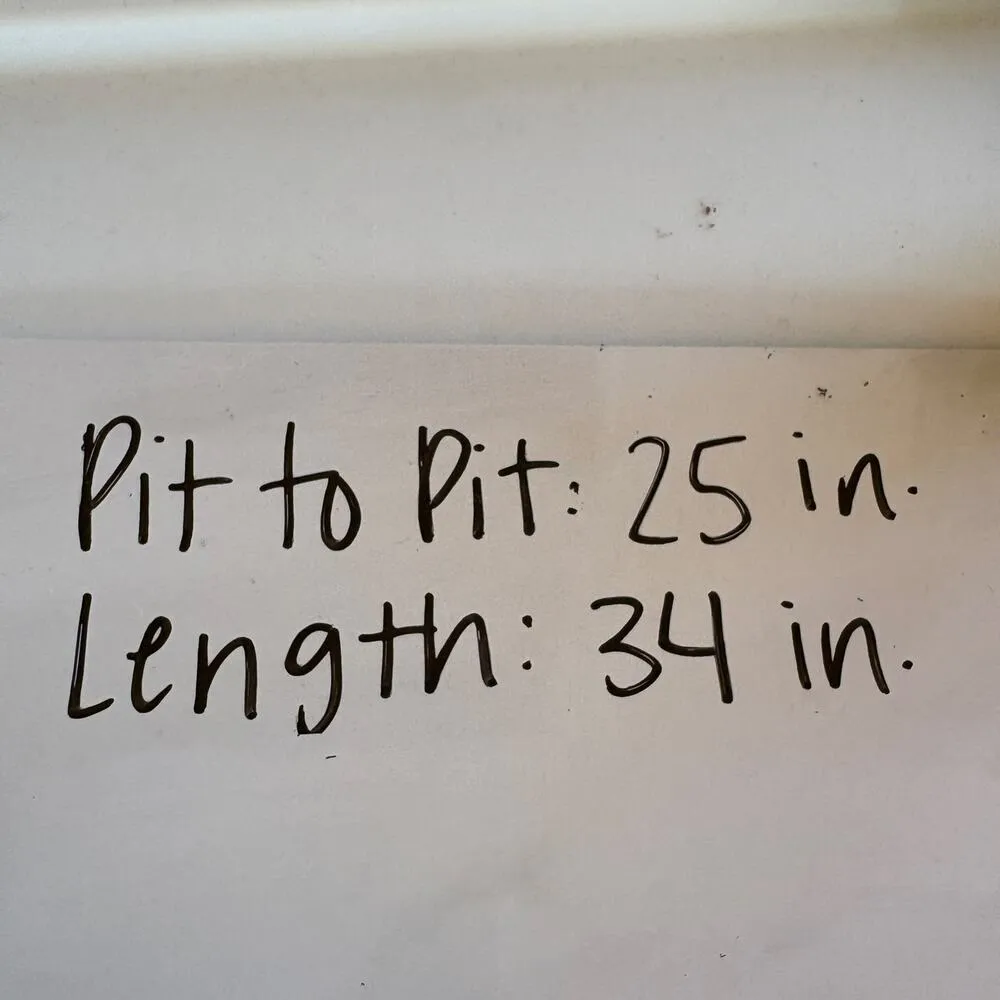 Pit to Pit: 25 in.
Length: 34 in.